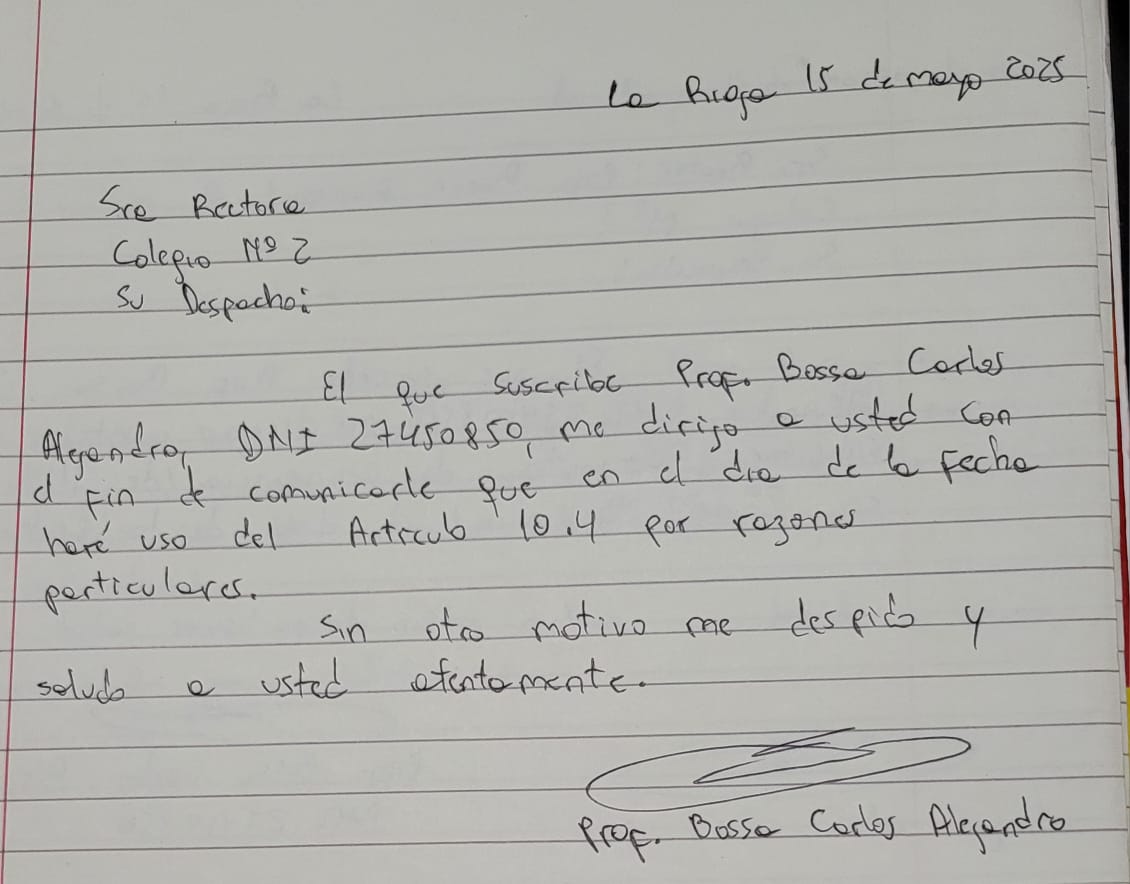 La Rioja 15 de mayo 2025
Sra Rectora
Colegio Nº 2
Su Despacho:
El que suscribe Prof. Bossa Carlos
Alejandro, DNI 27450850, me dirijo a usted con
el fin de comunicarle que en el dia de la fecha
haré uso del Articulo 10.4 por razones
particulares.
Sin otro motivo me despido y
saludo a usted atentamente.
Prof. Bossa Carlos Alejandro